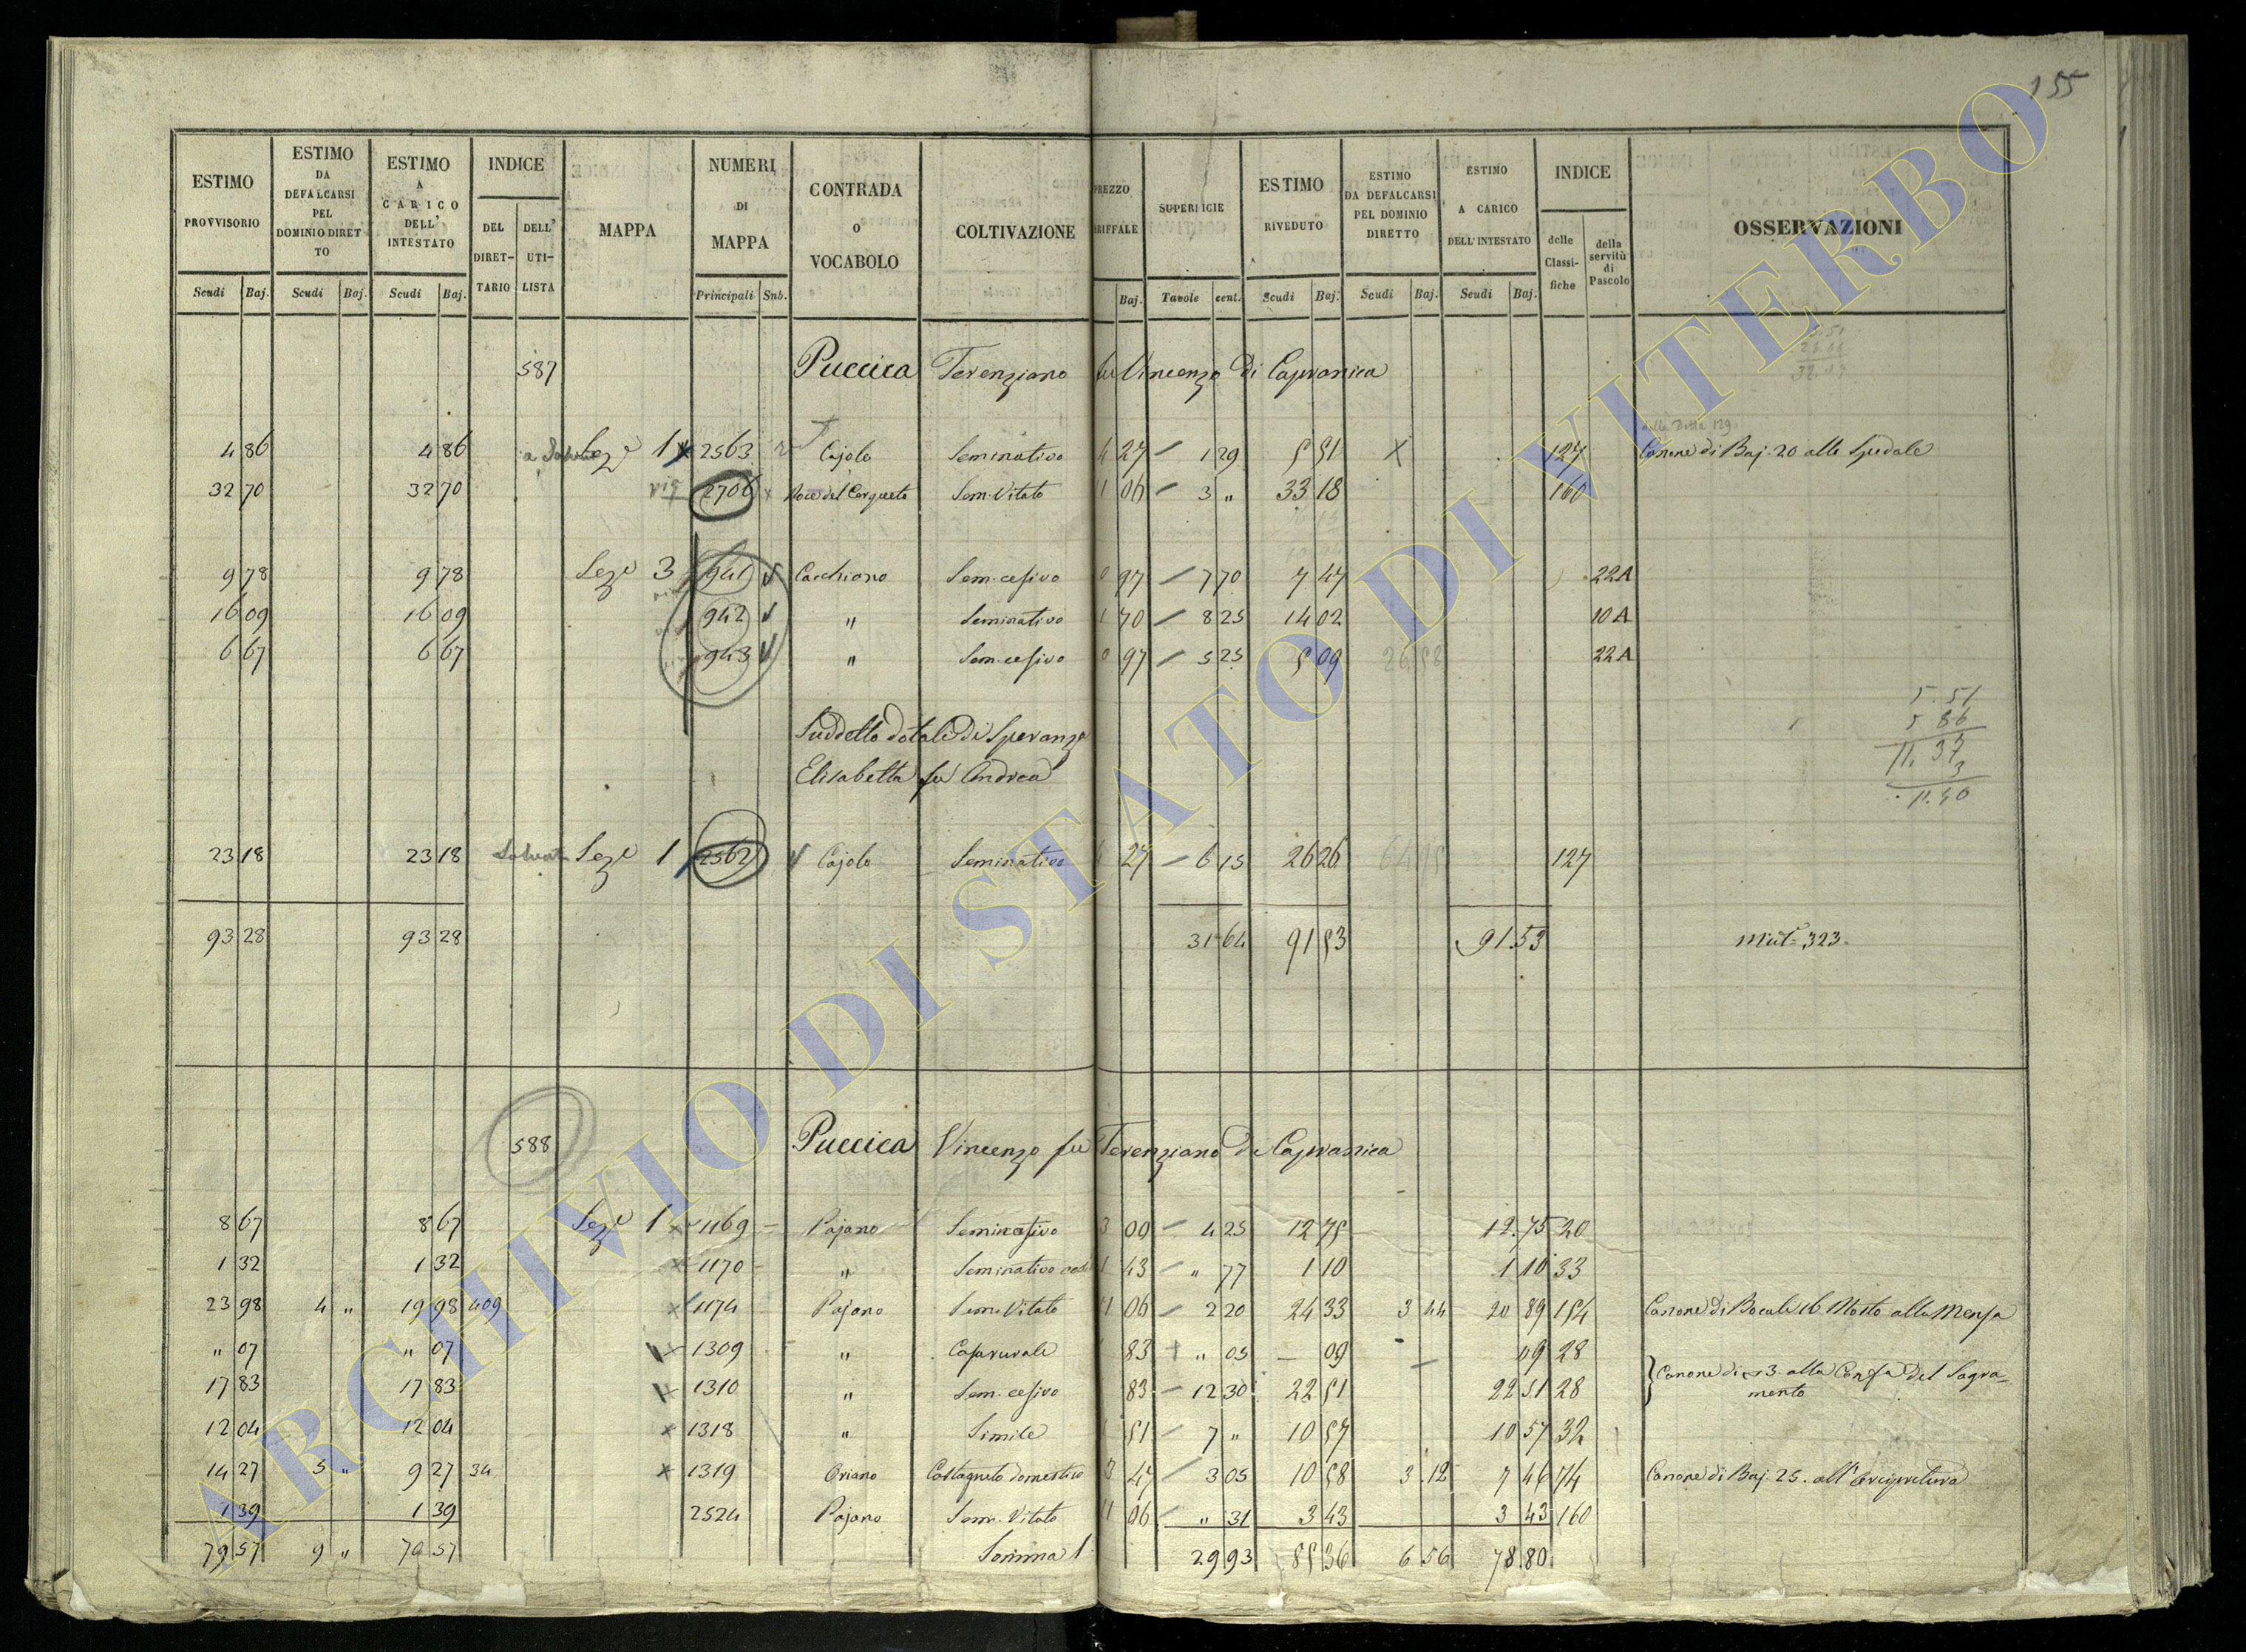 155
ESTIMO PROVVISORIO
ESTIMO DA DEFALCARSI PEL DOMINIO DIRETTO
ESTIMO A CARICO DELL' INTESTATO
INDICE
DEL DIRETTARIO
DELL' UTILISTA
MAPPA
NUMERI DI MAPPA
CONTRADA o VOCABOLO
COLTIVAZIONE
PREZZO TARIFFALE
SUPERFICIE
ESTIMO RIVEDUTO
ESTIMO DA DEFALCARSI PEL DOMINIO DIRETTO
ESTIMO A CARICO DELL' INTESTATO
INDICE
delle Classifiche
della servitù di Pascolo
OSSERVAZIONI
Scudi Baj. Scudi Baj. Scudi Baj. Principali Snb. Baj. Tavole cent. Scudi Baj. Scudi Baj. Scudi Baj.
587 Puccica Terenziano fu Vincenzo di Capranica
4 86 4 86 Seze 1 2563 Cajolo Seminativo 4 27 1 29 5 51 127 Canone di Baj. 20 allo Spedale
32 70 32 70 2706 Noce del Cerqueto Sem. Vitato 11 06 3 " 33 18 160
9 78 9 78 Seze 3 941 Cacchiano Sem. cesivo 0 97 7 70 7 47 22A
16 09 16 09 942 " Seminativo 1 70 8 25 14 02 10A
6 67 6 67 943 " Sem. cesivo 0 97 5 25 5 09 26 58 22A
5.51
5 86
11.37
3
11.40
Suddetto dotale di Speranza
Elisabetta fu Andrea
23 18 23 18 Seze 1 2562 Cajolo Seminativo 4 27 6 15 26 26 127
93 28 93 28 31 64 91 53 91.53 Mut. 323.
588 Puccica Vincenzo fu Terenziano di Capranica
8 67 8 67 Seze 1 1169 Pajano Semin cesivo 3 00 4 25 12 75 12.75 20
1 32 1 32 1170 " Seminativo 1 43 " 77 1 10 1 10 33
23 98 4 " 19 98 409 1174 Pajano Sem. Vitato 11 06 2 20 24 33 3 44 20 89 154 Canone di Bocali 16 Mosto alla Mensa
" 07 " 07 1309 " Casa rurale 1 83 " 05 09 09 28
17 83 17 83 1310 " Sem. cesivo 1 83 12 30 22 51 22 51 28 Canone di 13 alla Conf.a del Sagramento
12 04 12 04 1318 " Simile 1 51 7 " 10 57 10 57 32
14 27 5 " 9 27 34 1319 Oriano Castagneto domestico 3 47 3 05 10 58 3.12 7 46 74 Canone di Baj. 25. all'Arcipretura
1 39 1 39 2524 Pajano Sem. Vitato 11 06 " 31 3 43 3 43 160
79 57 9 " 70 57 Somma 1 29 93 85 36 6 56 78.80
ARCHIVIO DI STATO DI VITERBO